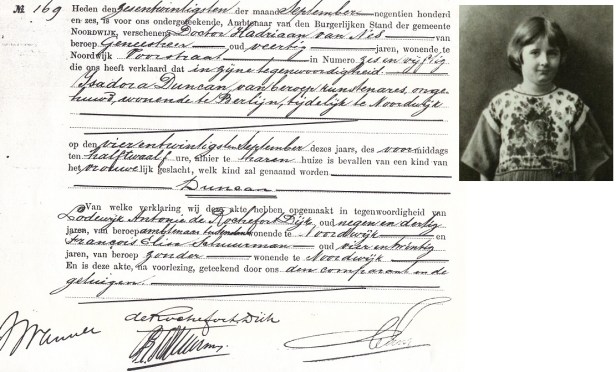 № 169 Heden den zesentwintigsten der maand September negentien honderd
en zes, is voor ons ondergeteekende, Ambtenaar van den Burgerlijken Stand der gemeente
NOORDWIJK, verschenen Doctor Hadriaan van Nes van
beroep Geneesheer oud veertig jaren, wonende te
Noordwijk Voorstraat in Numero zes en vijftig
die ons heeft verklaard dat in zijne tegenwoordigheid
Isadora Duncan, van beroep kunstenares, onge-
huwd, wonende te Berlijn, tijdelijk te Noordwijk
op den vierentwintigsten September dezes jaars, des voormiddags
ten half twaalf ure, alhier te haren huize is bevallen van een kind van
het vrouwelijk geslacht, welk kind zal genaamd worden
Duncan
Van welke verklaring wij deze akte hebben opgemaakt in tegenwoordigheid van
Lodewijk Antonie de Rochefort Dijk, oud negen en dertig
jaren, van beroep wonende te Noordwijk en
François Elisa Schuurman oud vier en twintig
jaren, van beroep zonder wonende te Noordwijk
En is deze akte, na voorlezing, geteekend door ons den comparant en de
getuigen.
de Rochefort Dijk